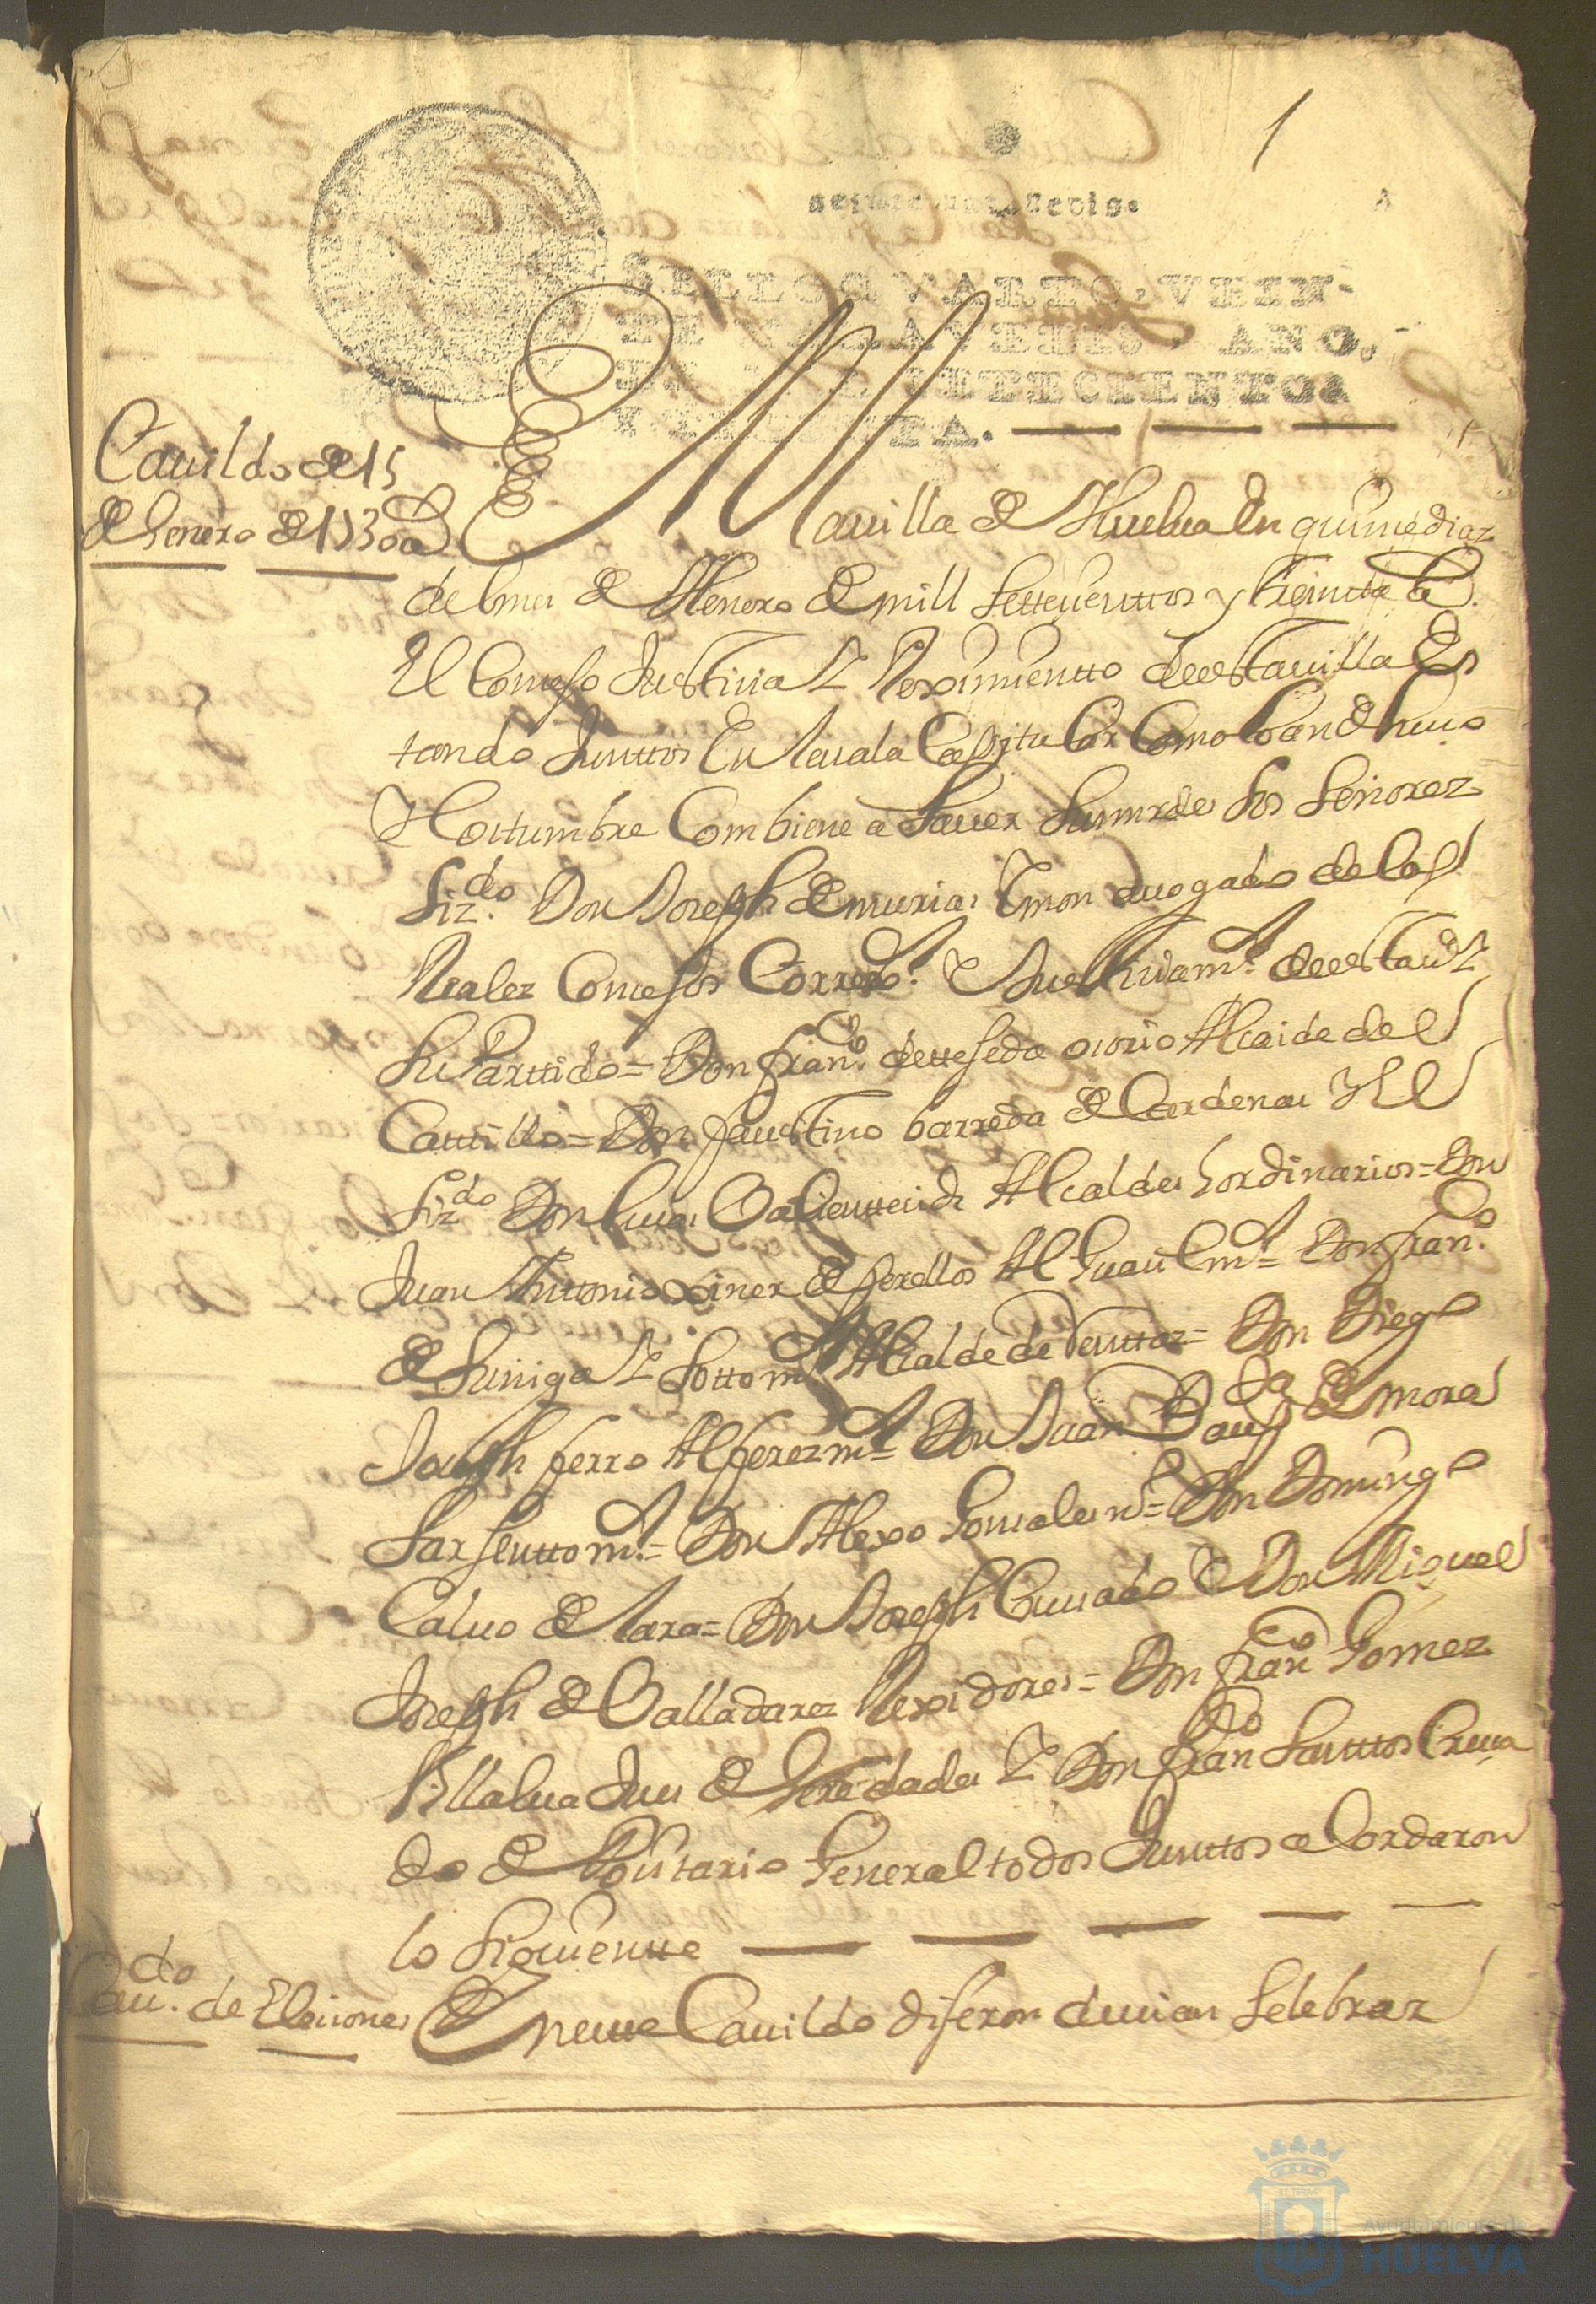 1
SELLO QVARTO, VEIN-
TE MARAVEDIS, AÑO
DE MIL SETECIENTOS
Y TREINTA.
Cauildo de 15
de henero de 1730 as
En la uilla de Huelua en quince dias
del mes de Henero de mill settesienttos y treintta as.
El Consejo Justticia Y Reximientto de esta uilla Es
tando Junttos En la sala Capitular Como lo an de husso
Y Costumbre Combiene a Sauer Sus mrdes Los Señorez
Lizdo. Don Joseph de murias Ymon auogado de los
Realez Consejos Correxor. Y Justticia mr. de esta ud. Y
Su Parttido = Don Franco. de ttejeda osorio Alcaide del
Casttillo = Don faustino barreda de Cardenas Y El
Lizdo Don Lucas Balientte Alcaldes hordinarios = Don
Juan Anttonio xiner de perellos Alguacil mr = Don Franco.
de Suniga Y Sottomr Alcalde de Penttaz = Don Diego
Joseph ferro Alferez mr = Don Juan Bautta de mora
Sarjentto mr. = Don Alexo Gonsales nl = Don Domingo
Caluo de lara = Don Joseph Cruzado Y Don Miguel
Joseph de Balladarez Rexidores = Don Franco Gomez
Villalua Jues de heredades Y Don Franco Santtos Cruza
do de Positario General todos Junttos aCordaron
lo siguientte
Caudo. de Eleciones
En estte Cauildo dijeron deuian Selebrar
Ayuntamiento de
HUELVA